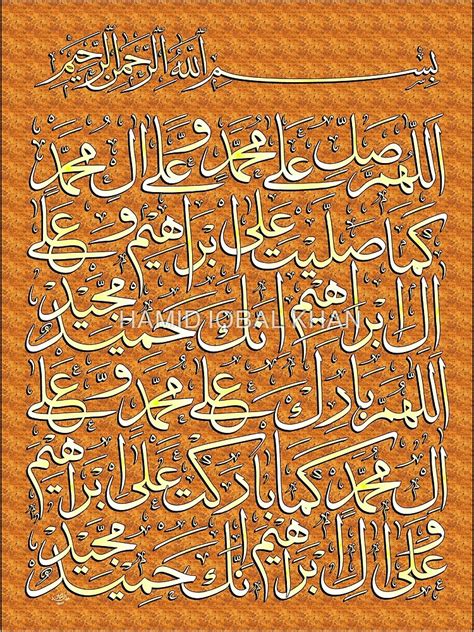 بسم الله الرحمن الرحيم
اللهم صل على محمد وعلى ال محمد
كما صليت على ابراهيم وعلى
ال ابراهيم انك حميد مجيد
HAMID IQBAL KHAN
اللهم بارك على محمد وعلى
ال محمد كما باركت على ابراهيم
وعلى ال ابراهيم انك حميد مجيد